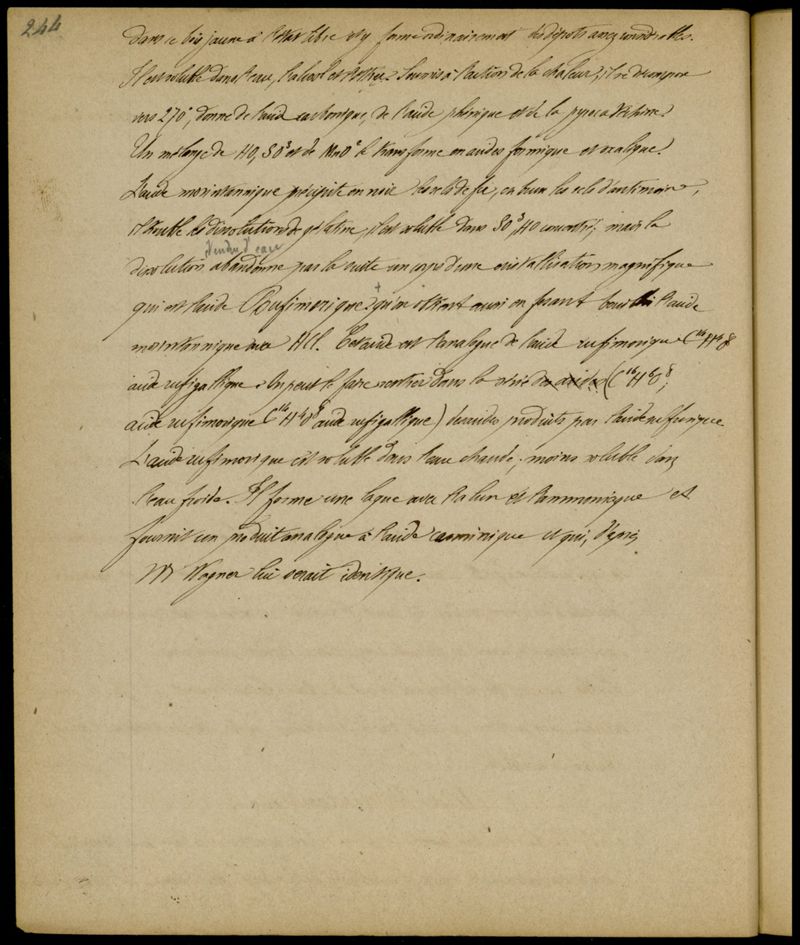 244
dans ce bois jaune à l'état libre et y forme ordinairement des dépôts assez considérables.
Il est soluble dans l'eau, l'alcool et l'éther. Soumis à l'action de la chaleur, il se décompose
vers 270°, donne de l'acide carbonique, de l'acide phénique et de la pyrocatéchine.
Un mélange de HO, SO³ et de MnO² le transforme en acides formique et oxalique.
L'acide morintannique précipite en noir les sels de fer, en brun les sels d'antimoine,
il trouble les dissolutions de gélatine, il est soluble dans SO³, HO concentré; mais la
étendu d'eau
dissolution abandonne par la suite un corps d'une cristallisation magnifique
qui est l'acide Rufimorique + qu'on obtient aussi en faisant bouillir l'acide
morintannique avec HCl. Cet acide est l'analogue de l'acide rufimorique C¹⁶H⁸O⁸
acide rufigallique. On peut le faire rentrer dans la série des acides (C¹⁶H⁶O⁸;
acide rufimorique C¹⁴H⁶O⁸ acide rufigallique) dérivés produits par l'acide
L'acide rufimorique est soluble dans l'eau chaude, moins soluble dans
l'eau froide. Il forme une laque avec l'alun et l'ammoniaque et
fournit un produit analogue à l'acide carminique et qui, d'après
Mr Wagner lui serait identique.